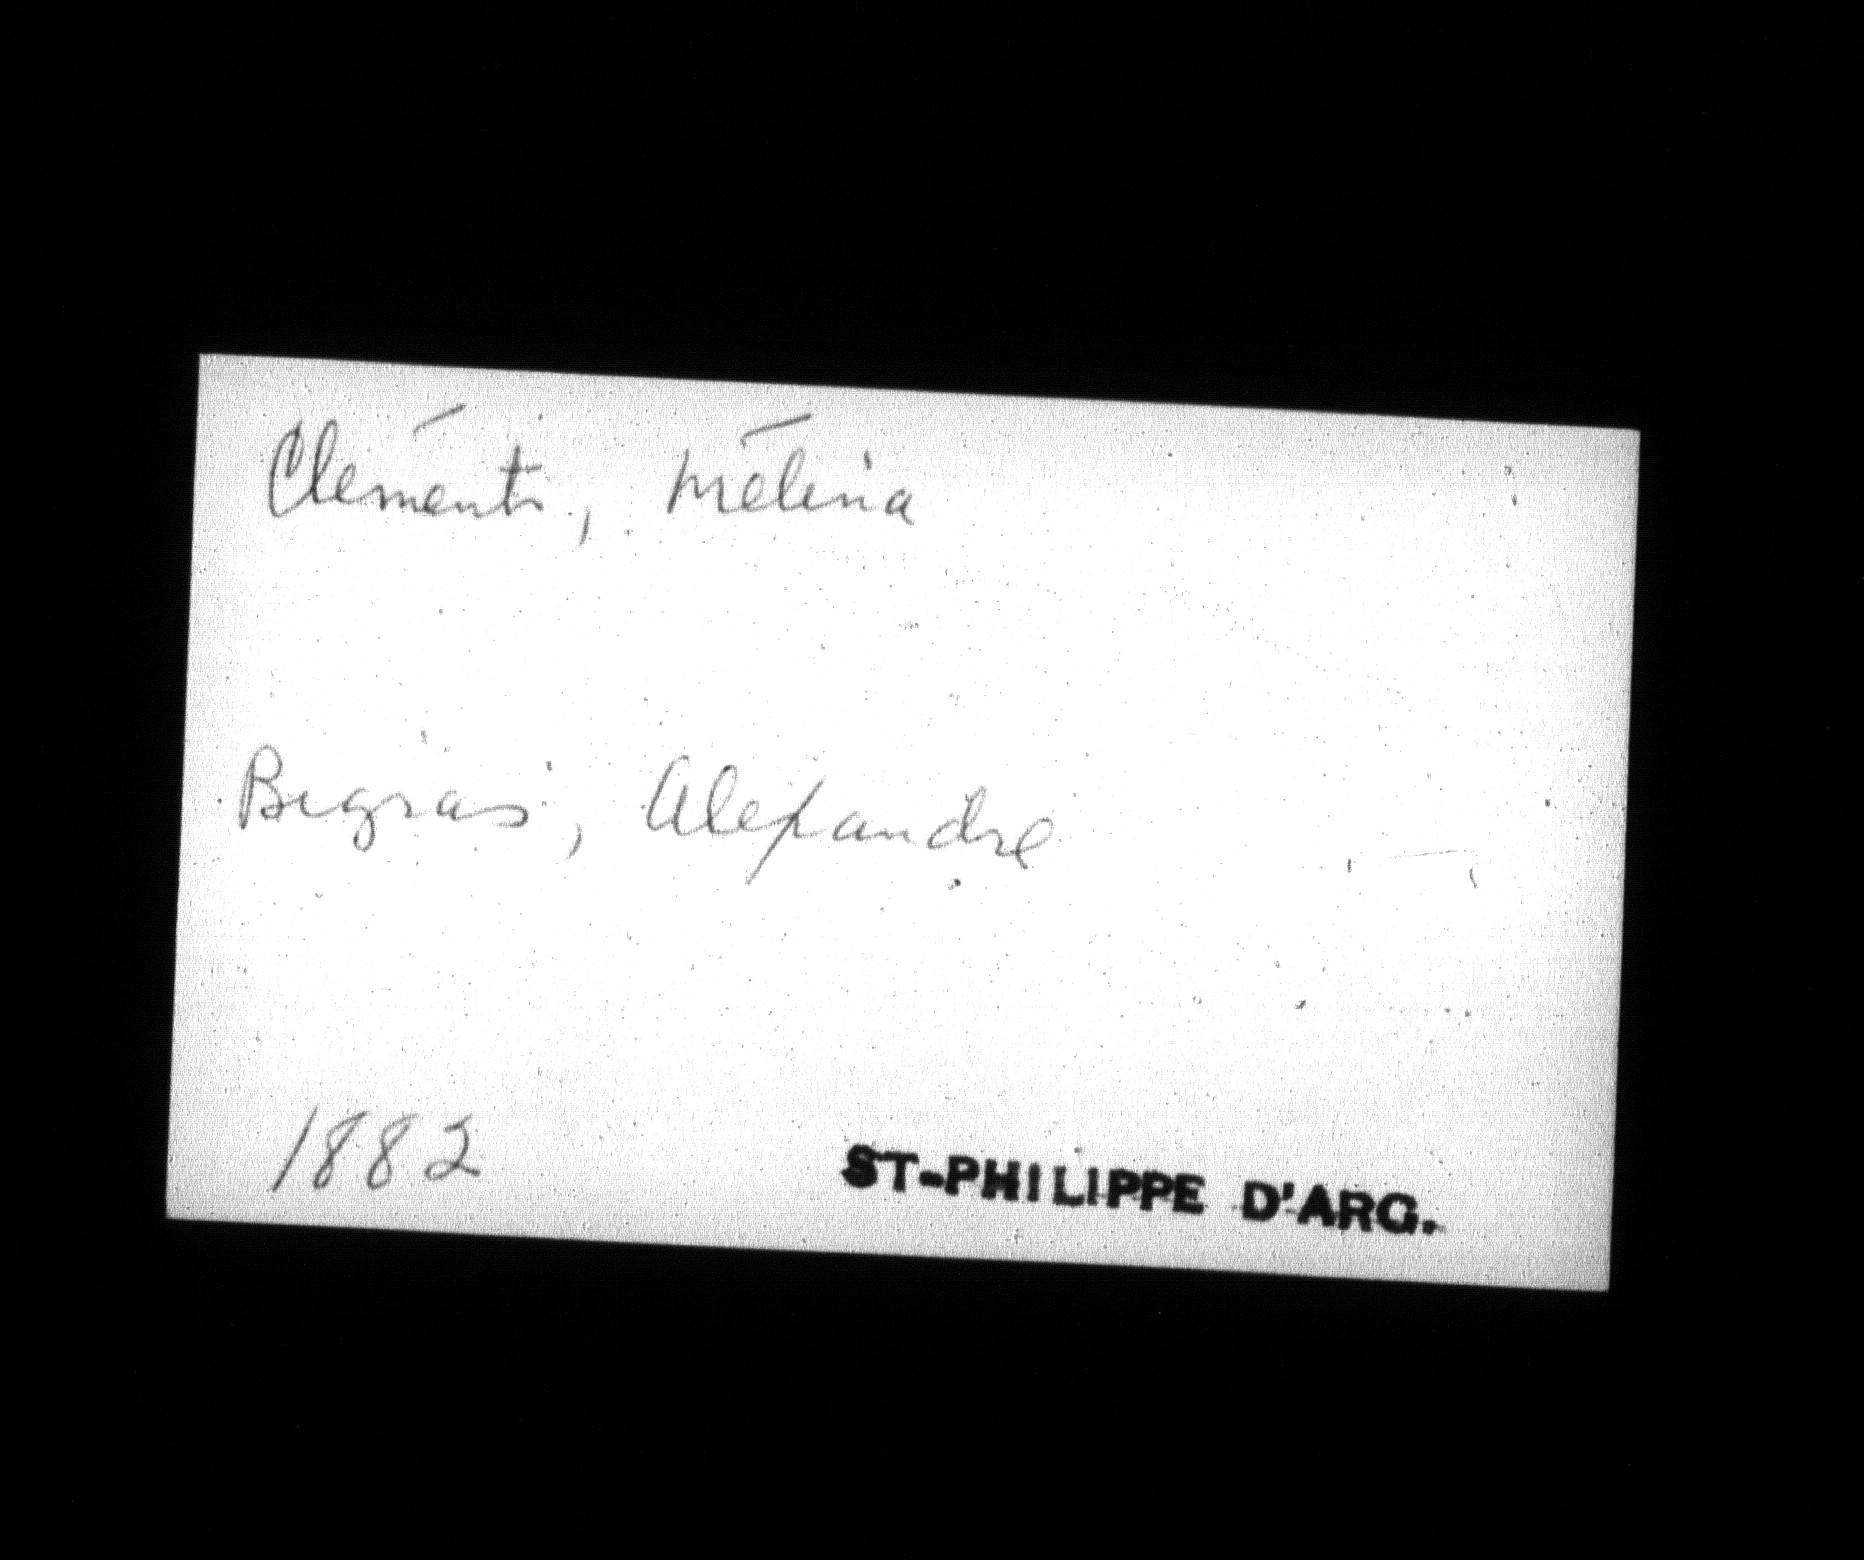 Clément, Mélina
Bigras, Alexandre
1882 ST-PHILIPPE D'ARG.